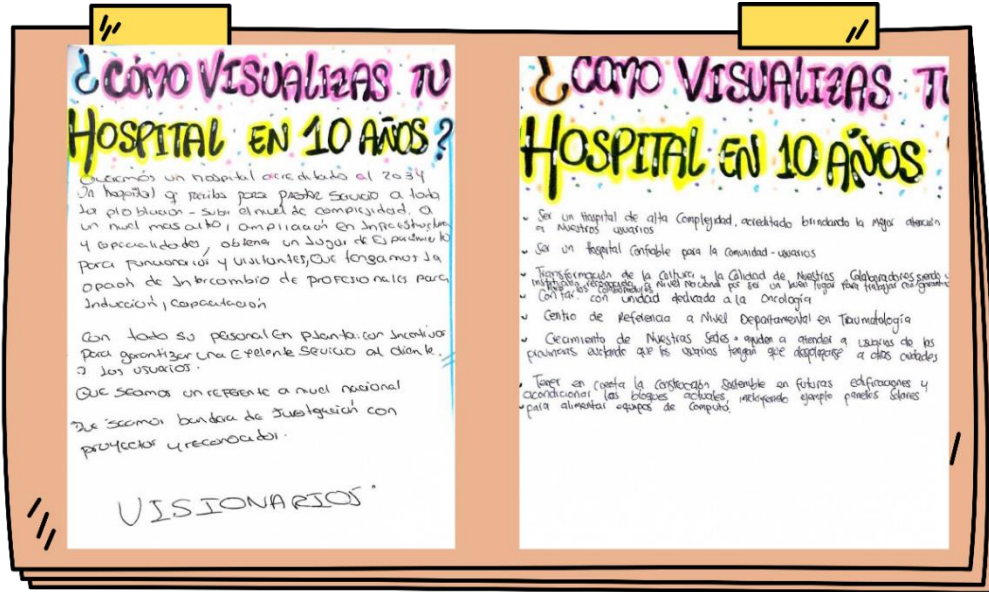 ¿CÓMO VISUALIZAS TU
HOSPITAL EN 10 AÑOS?
Queremos un hospital acreditado al 2034
Un hospital q permita para prestar Servicio a toda
la población - subir el nivel de complejidad, a
un nivel mas alto, ampliación en Infraestructura
y especialidades, obtener un lugar de Esparcimiento
para funcionarios y visitantes, Que tengamos la
opción de Intercambio de profesionales para
Inducción, capacitación
Con todo su personal En planta: con Incentivos
Para garantizar una Excelente Servicio al cliente.
y los usuarios.
QUE SEAMOS UN REFERENTE a nivel nacional
Que seamos bandera de Investigación con
proyectos y reconocidos.
VISIONARIOS
¿COMO VISUALIZAS TU
HOSPITAL EN 10 AÑOS
Ser un Hospital de alta Complejidad, acreditado brindando la mejor atención
a Nuestros usuarios
Ser un Hospital Confiable para la Comunidad - usuarios
Transformación de la Cultura y la Calidad de Nuestros Colaboradores siendo
institución reconocida a Nivel Nacional por ser un buen lugar para trabajar con
para los colaboradores
Contar con unidad dedicada a la Oncología
Centro de Referencia a Nivel Departamental en Traumatología
Crecimiento de Nuestras Sedes ayuden a atender a usuarios de las
provincias evitando que los usuarios tengan que desplazarse a otras ciudades
Tener en cuenta la construcción Sostenible en futuras edificaciones y
acondicionar los bloques actuales, incluyendo ejemplo paneles Solares
para alimentar equipos de Computo.